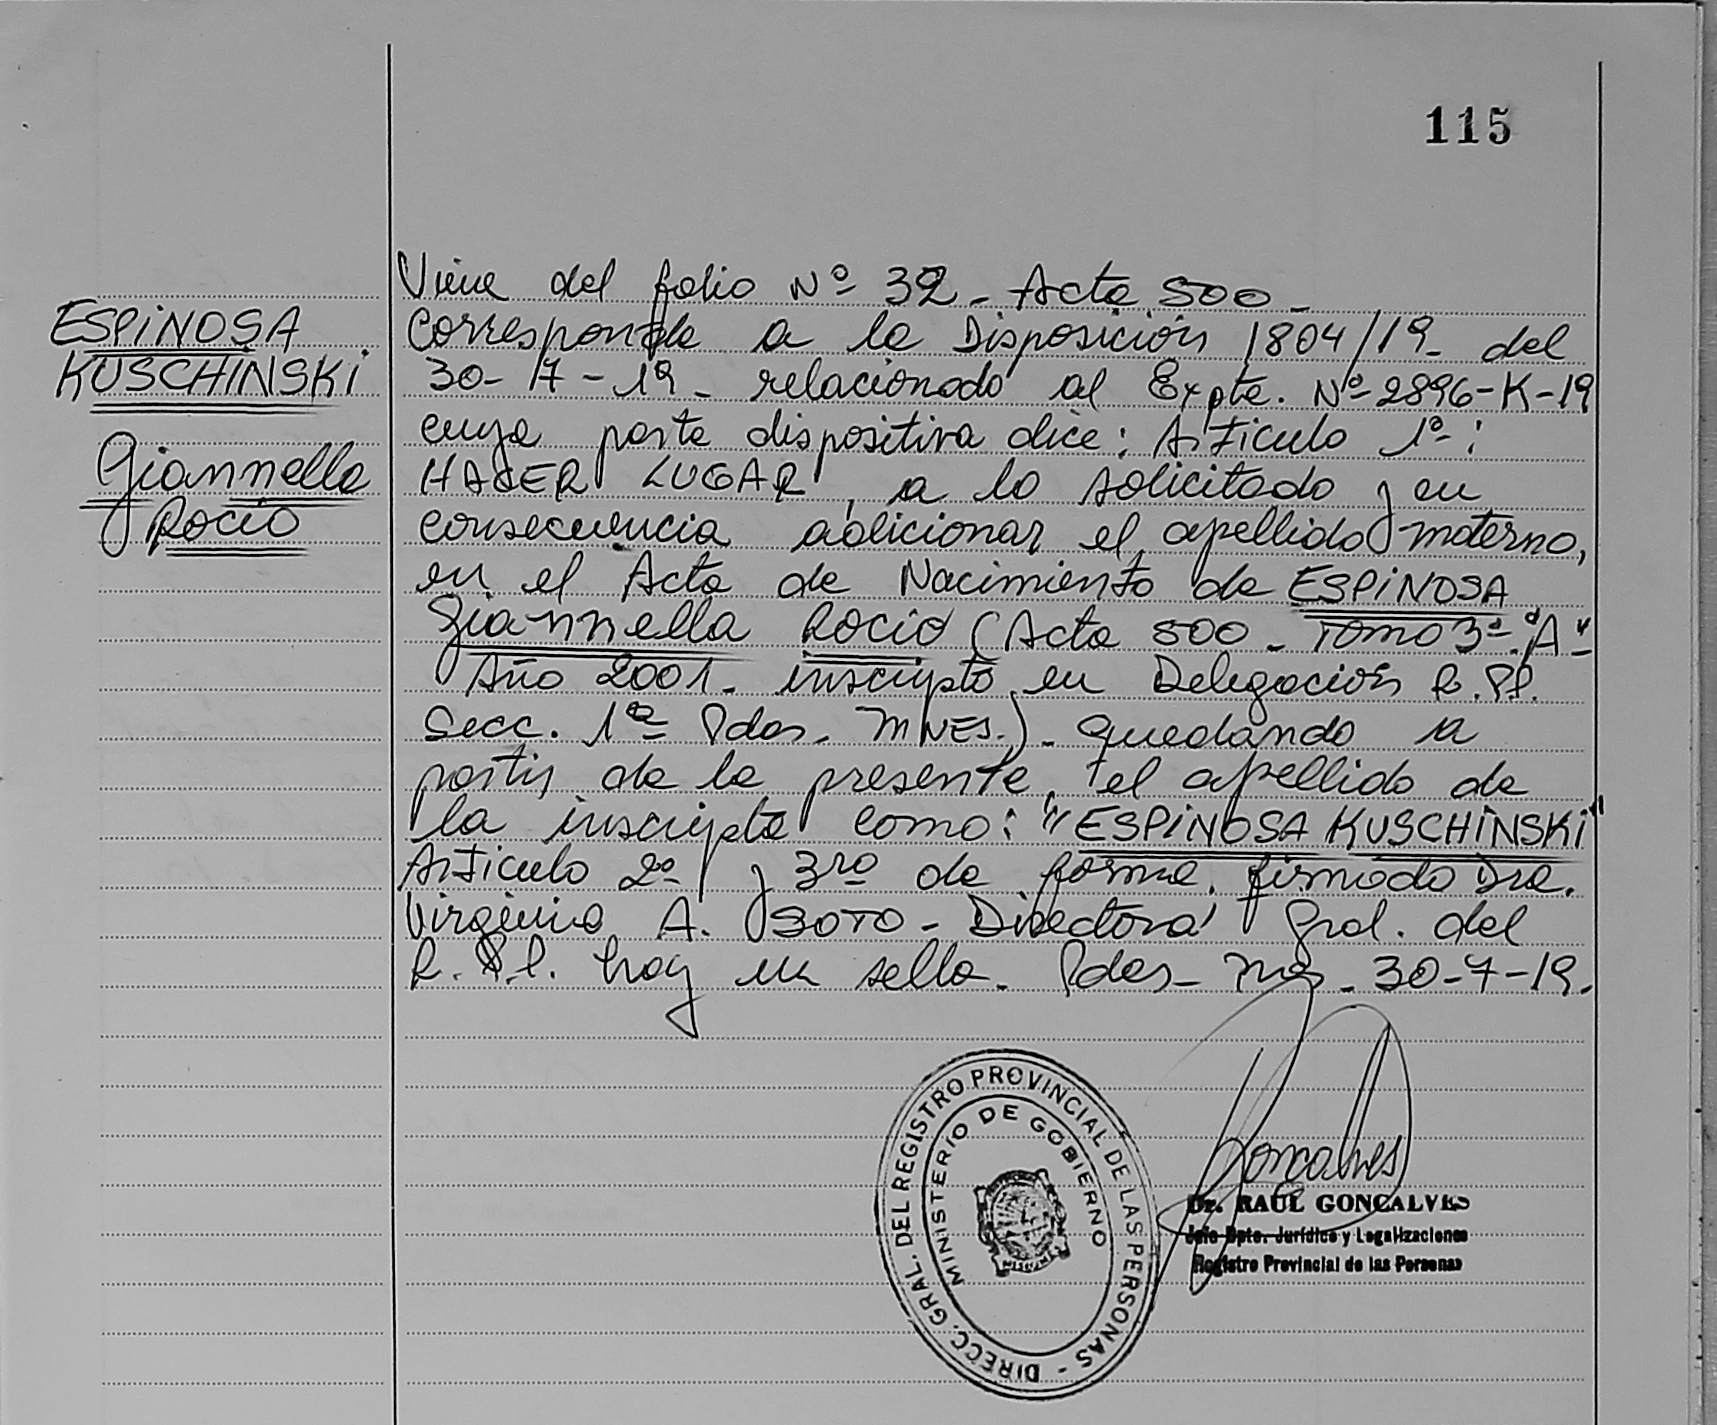 115
ESPINOSA
KUSCHINSKI
Giannella
Rocio
Viene del folio Nº 32 - Acta 500 -
Corresponde a la Disposición 1804/19 - del
30 - 7 - 19 - relacionado al Expte. Nº 2896-K-19
cuya parte dispositiva dice: Artículo 1º:
HACER LUGAR, a lo solicitado y en
consecuencia adicionar el apellido materno,
en el Acta de Nacimiento de ESPINOSA
Giannella Rocio (Acta 500 - Tomo 3º "A" -
Año 2001 - inscripta en Delegación R.PP.
Secc. 1ª Pdas. MNES.) - quedando a
partir de la presente, el apellido de
la inscripta como: "ESPINOSA KUSCHINSKI"
Artículo 2º y 3ro de forma. firmado Dra.
Virginia A. SOTO - Directora Gral. del
R.PP. hay un sello. Pdas - Mnes - 30-7-19.
DIRECC. GRAL. DEL REGISTRO PROVINCIAL DE LAS PERSONAS -
MINISTERIO DE GOBIERNO
MISIONES
Goncalves
Dr. RAUL GONCALVES
Jefe Dpto. Jurídico y Legalizaciones
Registro Provincial de las Personas